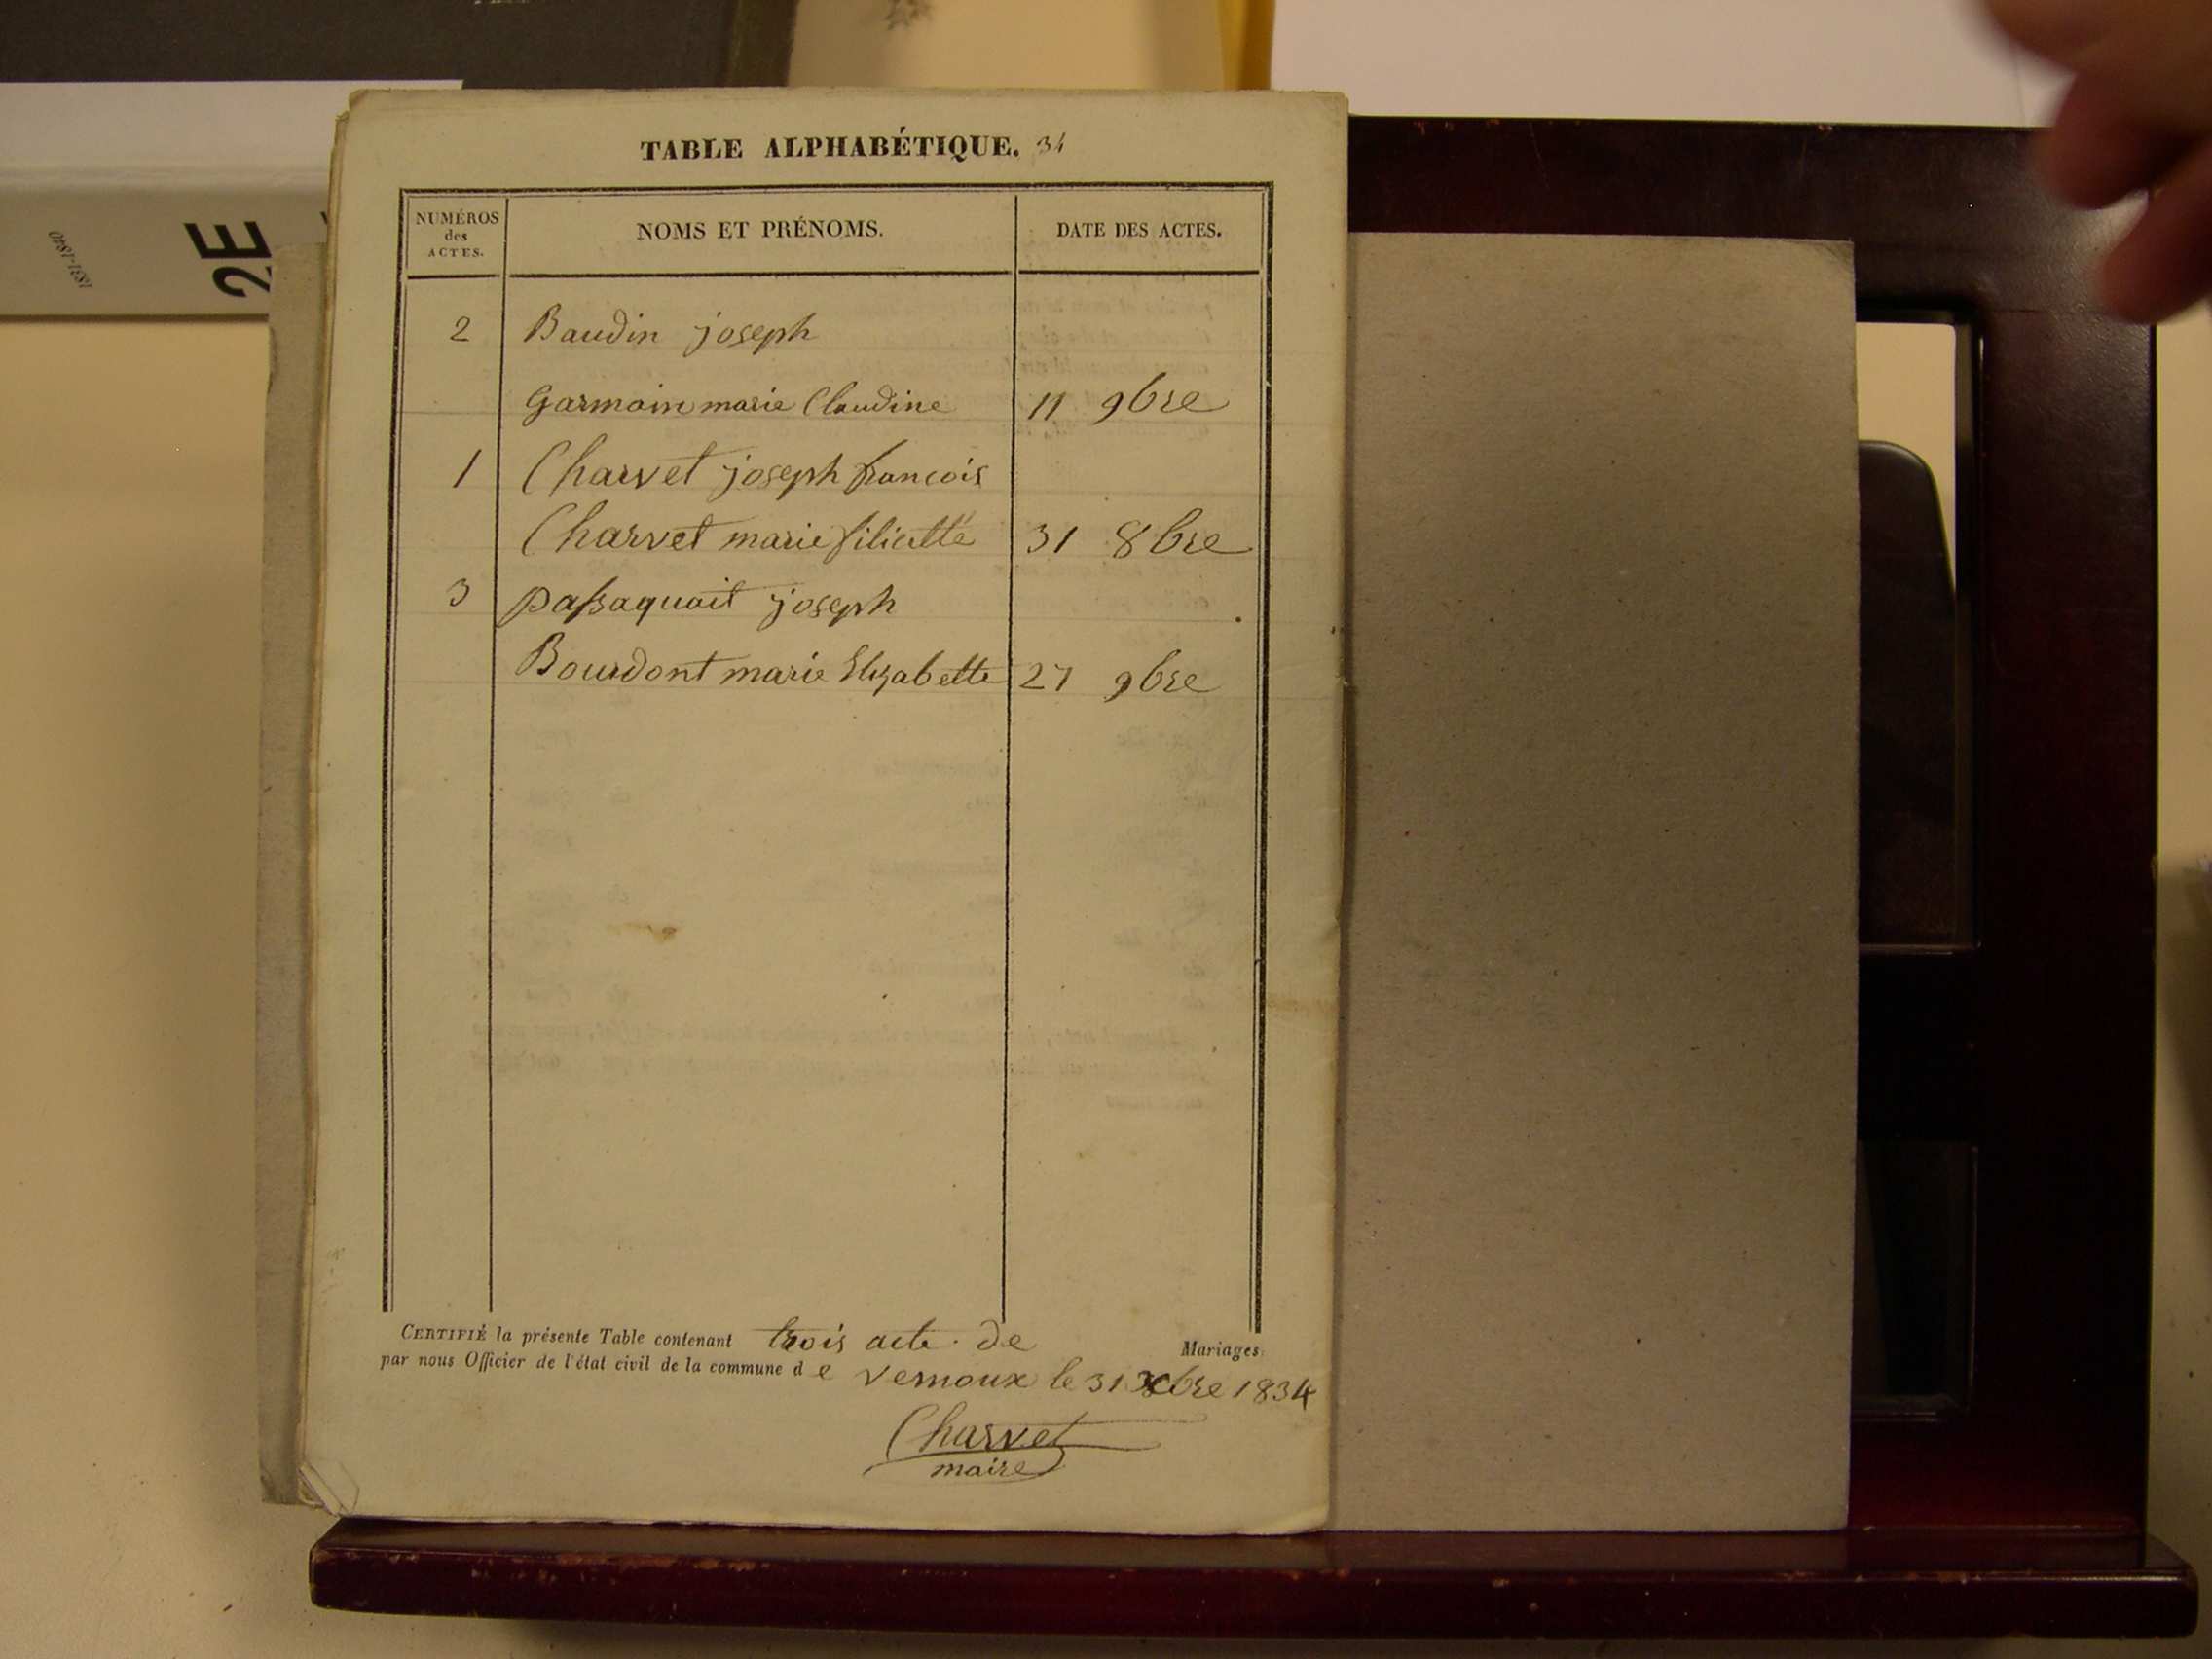 TABLE ALPHABÉTIQUE. 34
NUMÉROS
des
ACTES.
NOMS ET PRÉNOMS.
DATE DES ACTES.
2 Baudin joseph
Garmain marie Claudine 11 9bre
1 Charvet joseph francois
Charvet marie filicitté 31 8bre
3 passaquait joseph
Bourdont marie Elizabette 27 9bre
CERTIFIÉ la présente Table contenant trois acte de Mariages
par nous Officier de l'état civil de la commune de vernoux le 31 xbre 1834
Charvet
maire
2E
1831-1840